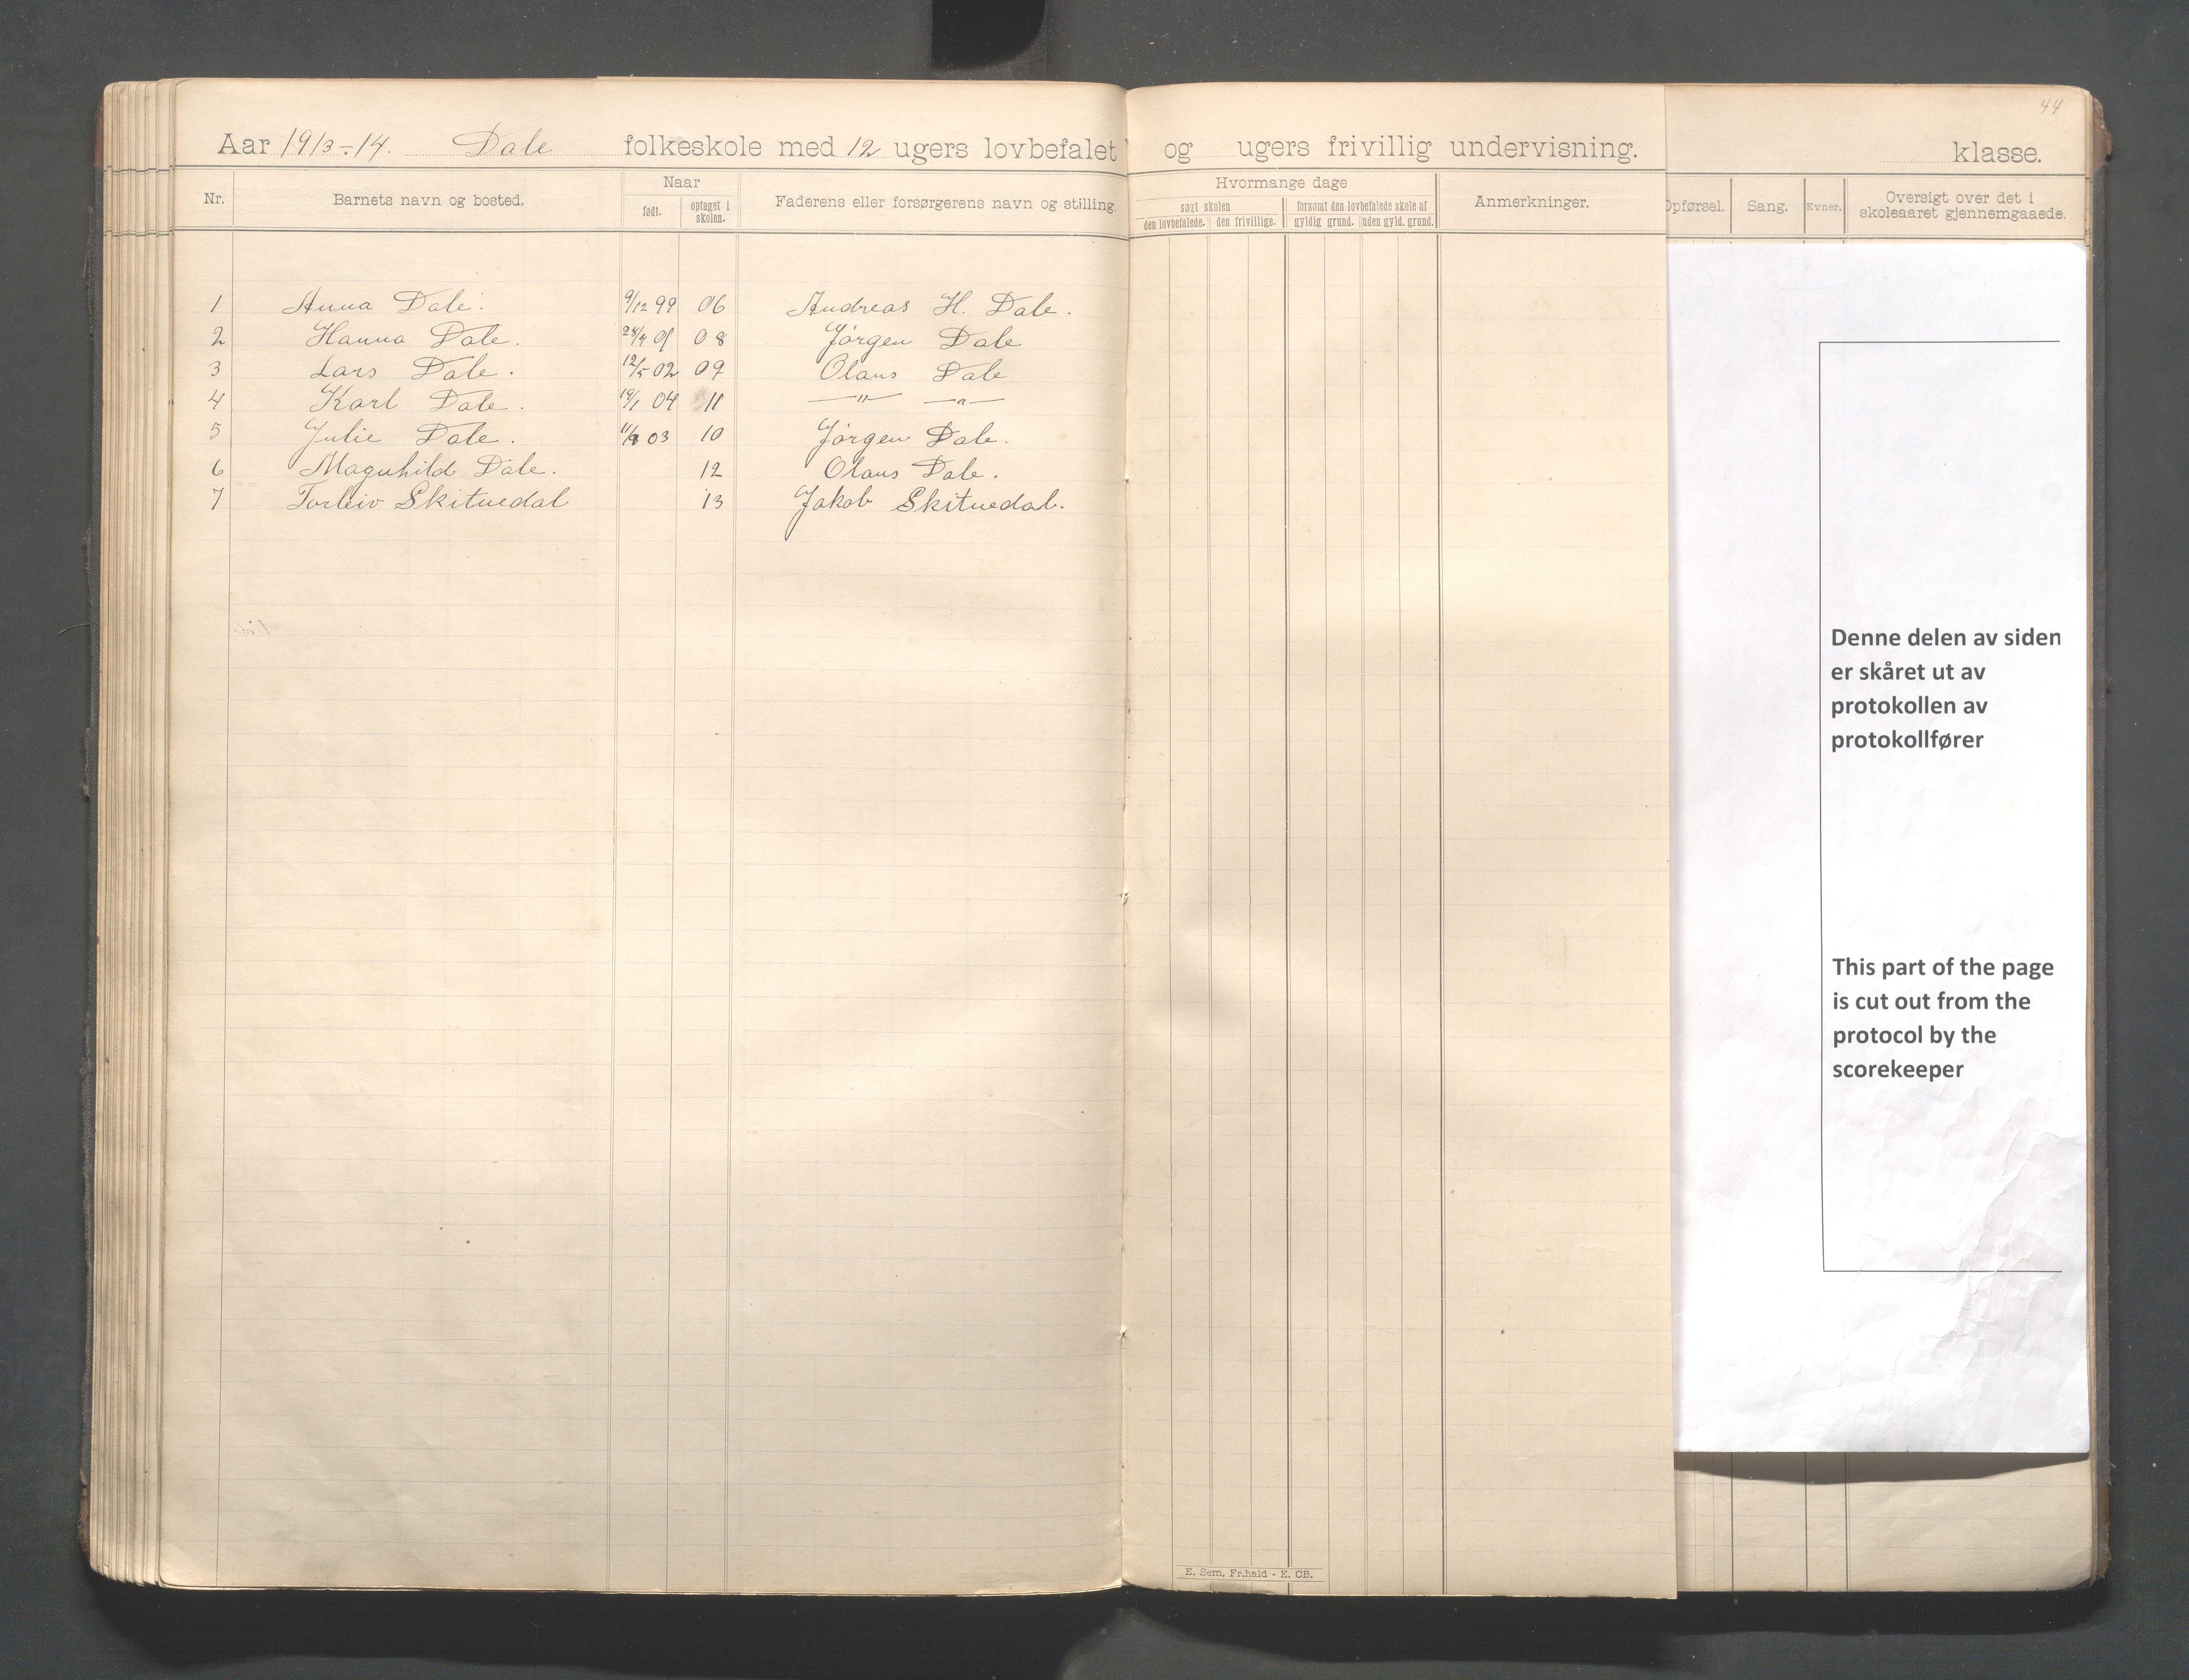 44
Aar 1913-14. Dale folkeskole med 12 ugers lovbefalet og ugers frivillig undervisning. klasse.
Nr. Barnets navn og bosted. Naar Faderens eller forsørgerens navn og stilling. Hvormange dage Anmerkninger. Opførsel. Sang. Evner. Oversigt over det i skoleaaret gjennemgaaede.
født. optaget i skolen. søgt skolen forsømt den lovbefalede skole af
den lovbefalede. den frivillige. gyldig grund. uden gyld. grund.
1 Anna Dale. 9/12 99 06 Andreas H. Dale.
2 Hanna Dale. 08 Jørgen Dale
3 Lars Dale. 12/5 02 09 Olaus Dale
4 Karl Dale. 19/1 04 11 —"— —"—
5 Julie Dale. 03 10 Jørgen Dale.
6 Magnhild Dale. 12 Olaus Dale.
7 Torleiv Skitnedal 13 Jakob Skitnedal.
Denne delen av siden
er skåret ut av
protokollen av
protokollfører
This part of the page
is cut out from the
protocol by the
scorekeeper
E. Sem, Fr.hald - E. CB.